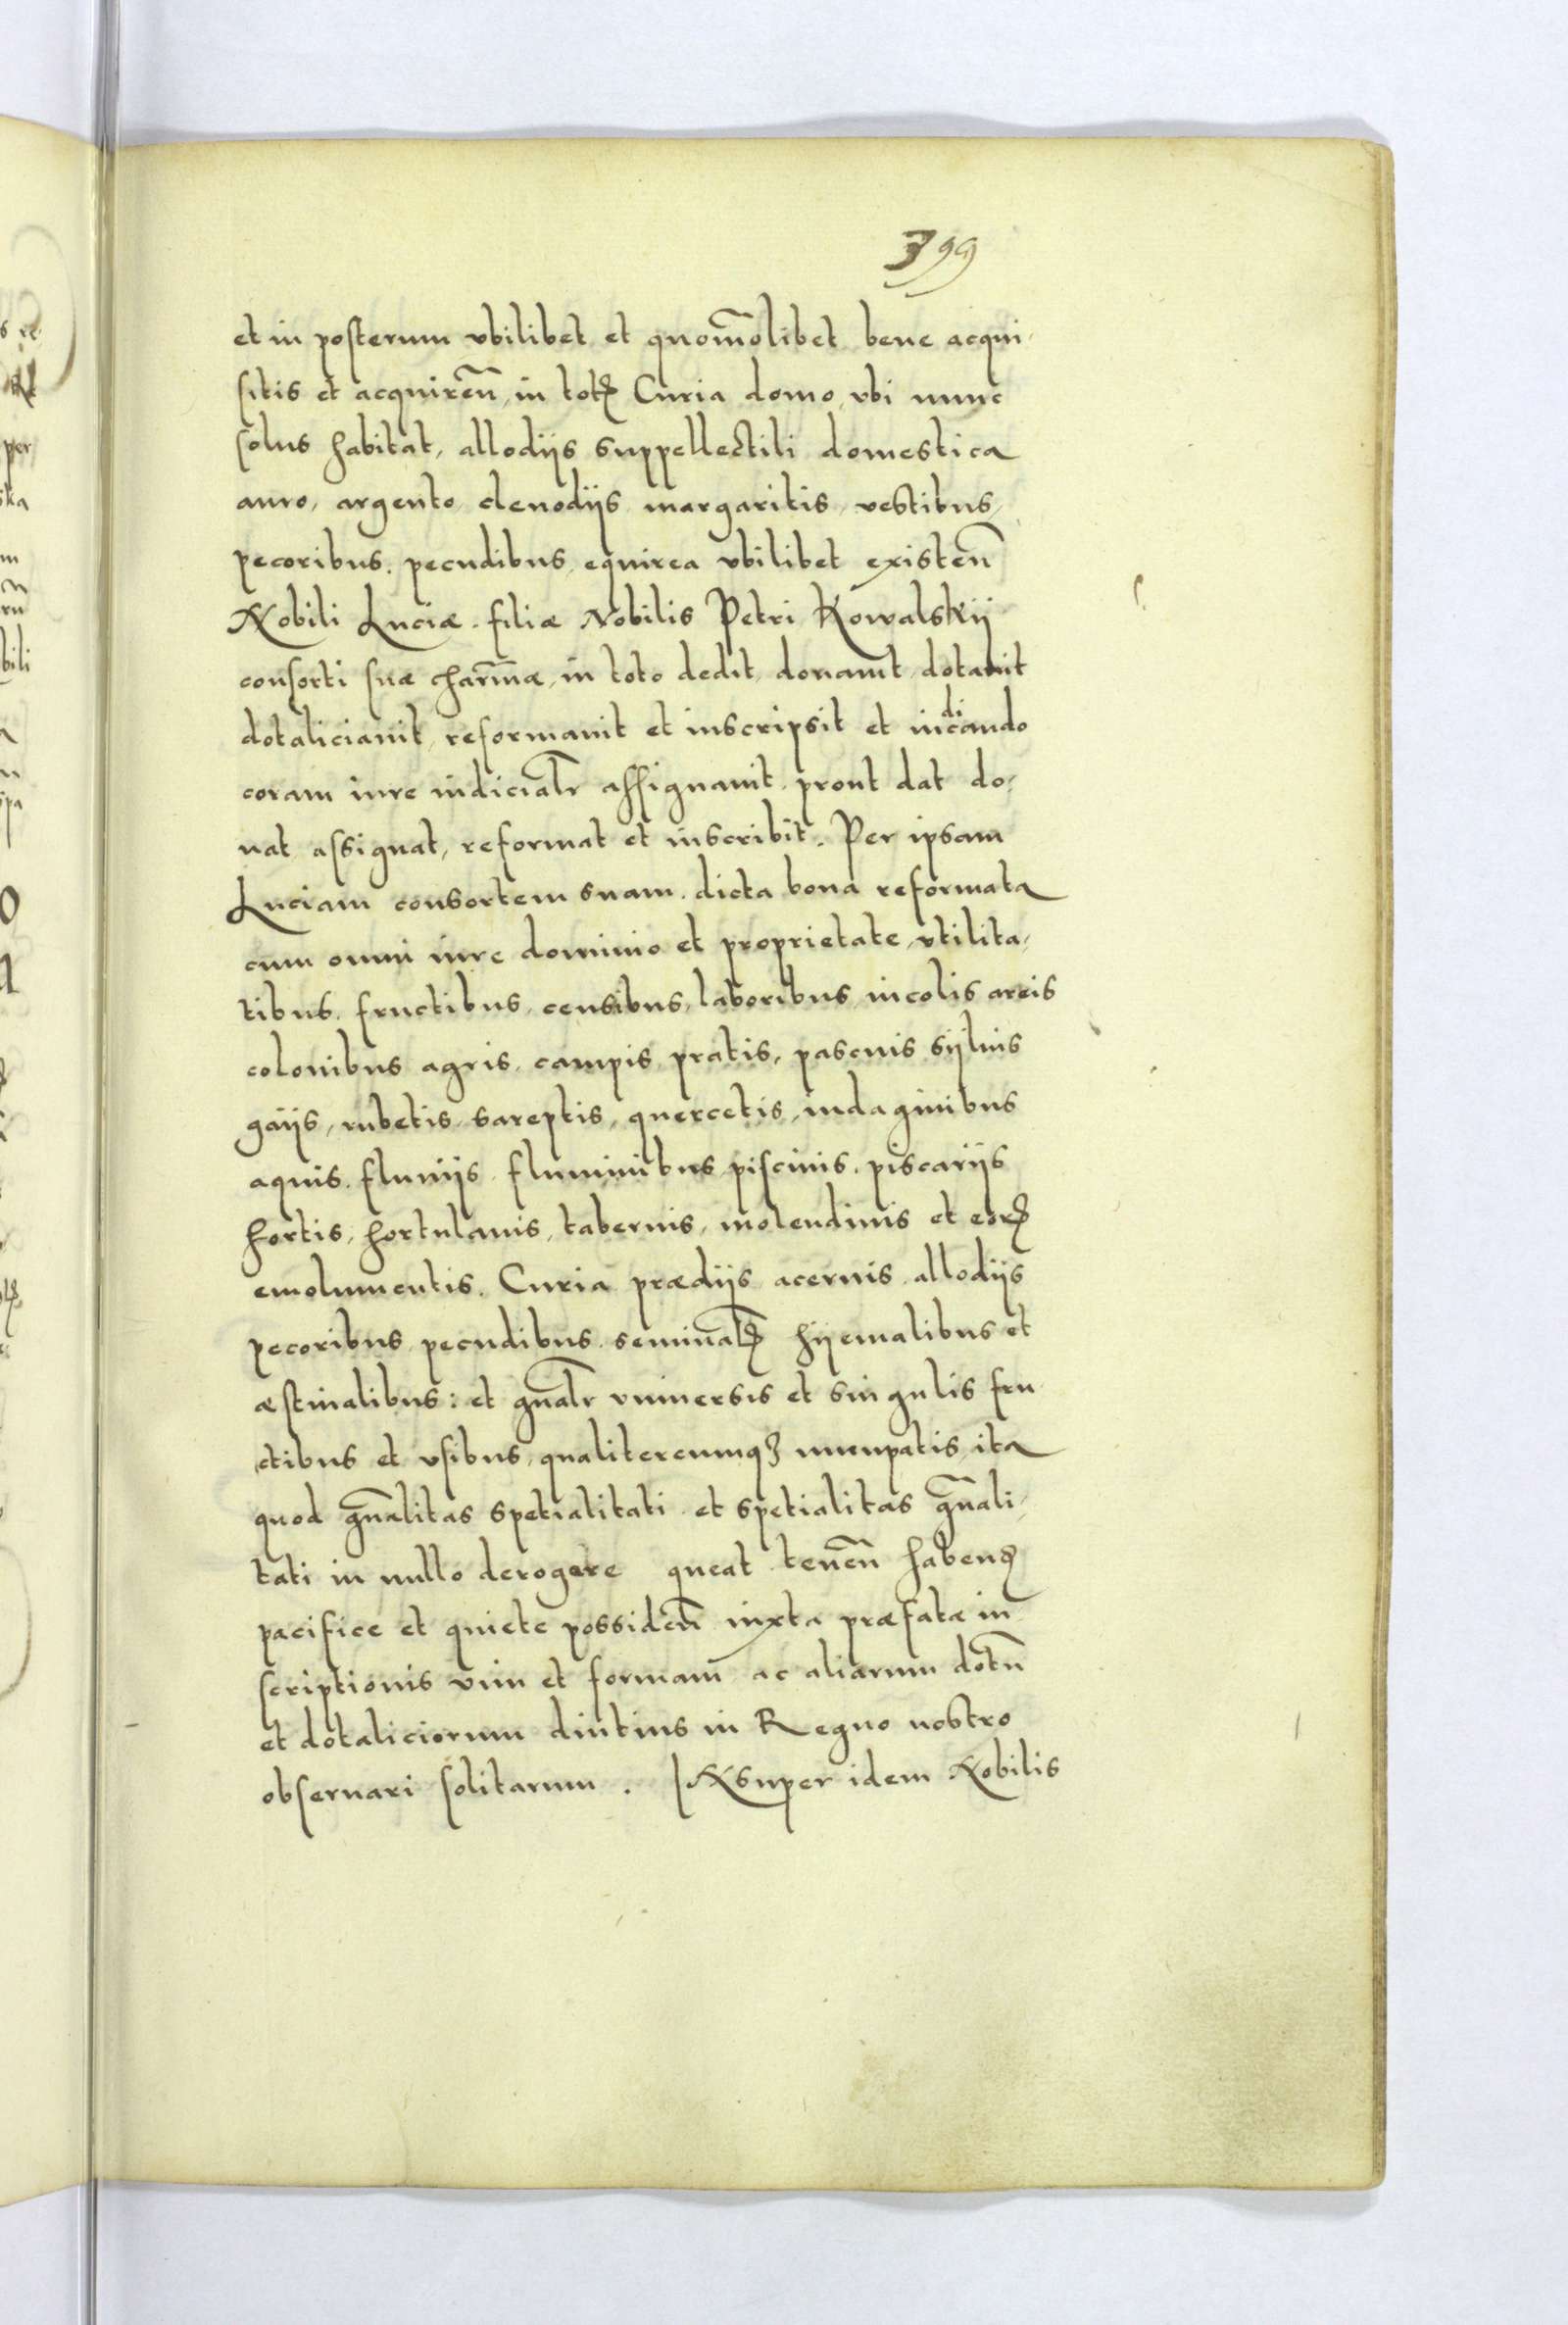 399
et in posterum vbilibet et quom̃olibet bene acqui-
sitis et acquireñ, in totꝭ Curia domo, vbi nunc
solus habitat, allodijs suppellectili domestica
auro, argento clenodijs margaritis, vestibus,
pecoribus, pecudibus, equirea vbilibet existeñ
Nobili Luciæ filiæ Nobilis Petri Kowalskij
consorti suæ charm̃æ, in toto dedit, donauit, dotauit
dotaliciauit, reformauit et inscripsit et iudicando
coram iure iudicial̃r assignauit, prout dat do-
nat assignat, reformat et inscribit. Per ipsam
Luciam consortem suam, dicta bona reformata
cum omni iure dominio et proprietate, vtilita-
tibus, fructibus, censibus, laboribus, incolis areis
colonibus agris, campis, pratis, pascuis sijluis
gaijs, rubetis, sareptis, quercetis, indaginibus
aquis, fluuijs, fluminibus, piscinis, piscarijs
hortis, hortulanis, tabernis, molendinis et eorꝭ
emolumentis. Curia prædijs aceruis allodijs
pecoribus, pecudibus, semina͠lꝭ hijemalibus et
æstiualibus: et gñal̃r vniuersis et singulis fru-
ctibus et vsibus, qualitercumqꝫ nuncupatis, ita
quod gñalitas spetialitati et spetialitas gñali-
tati in nullo derogare queat teneñ habenꝭ
pacifice et quiete possideñ iuxta præfatæ in
scriptionis vim et formam ac aliarum dotũ
et dotaliciorum diutius in Regno nostro
obseruari solitarum. INsuper idem Nobilis